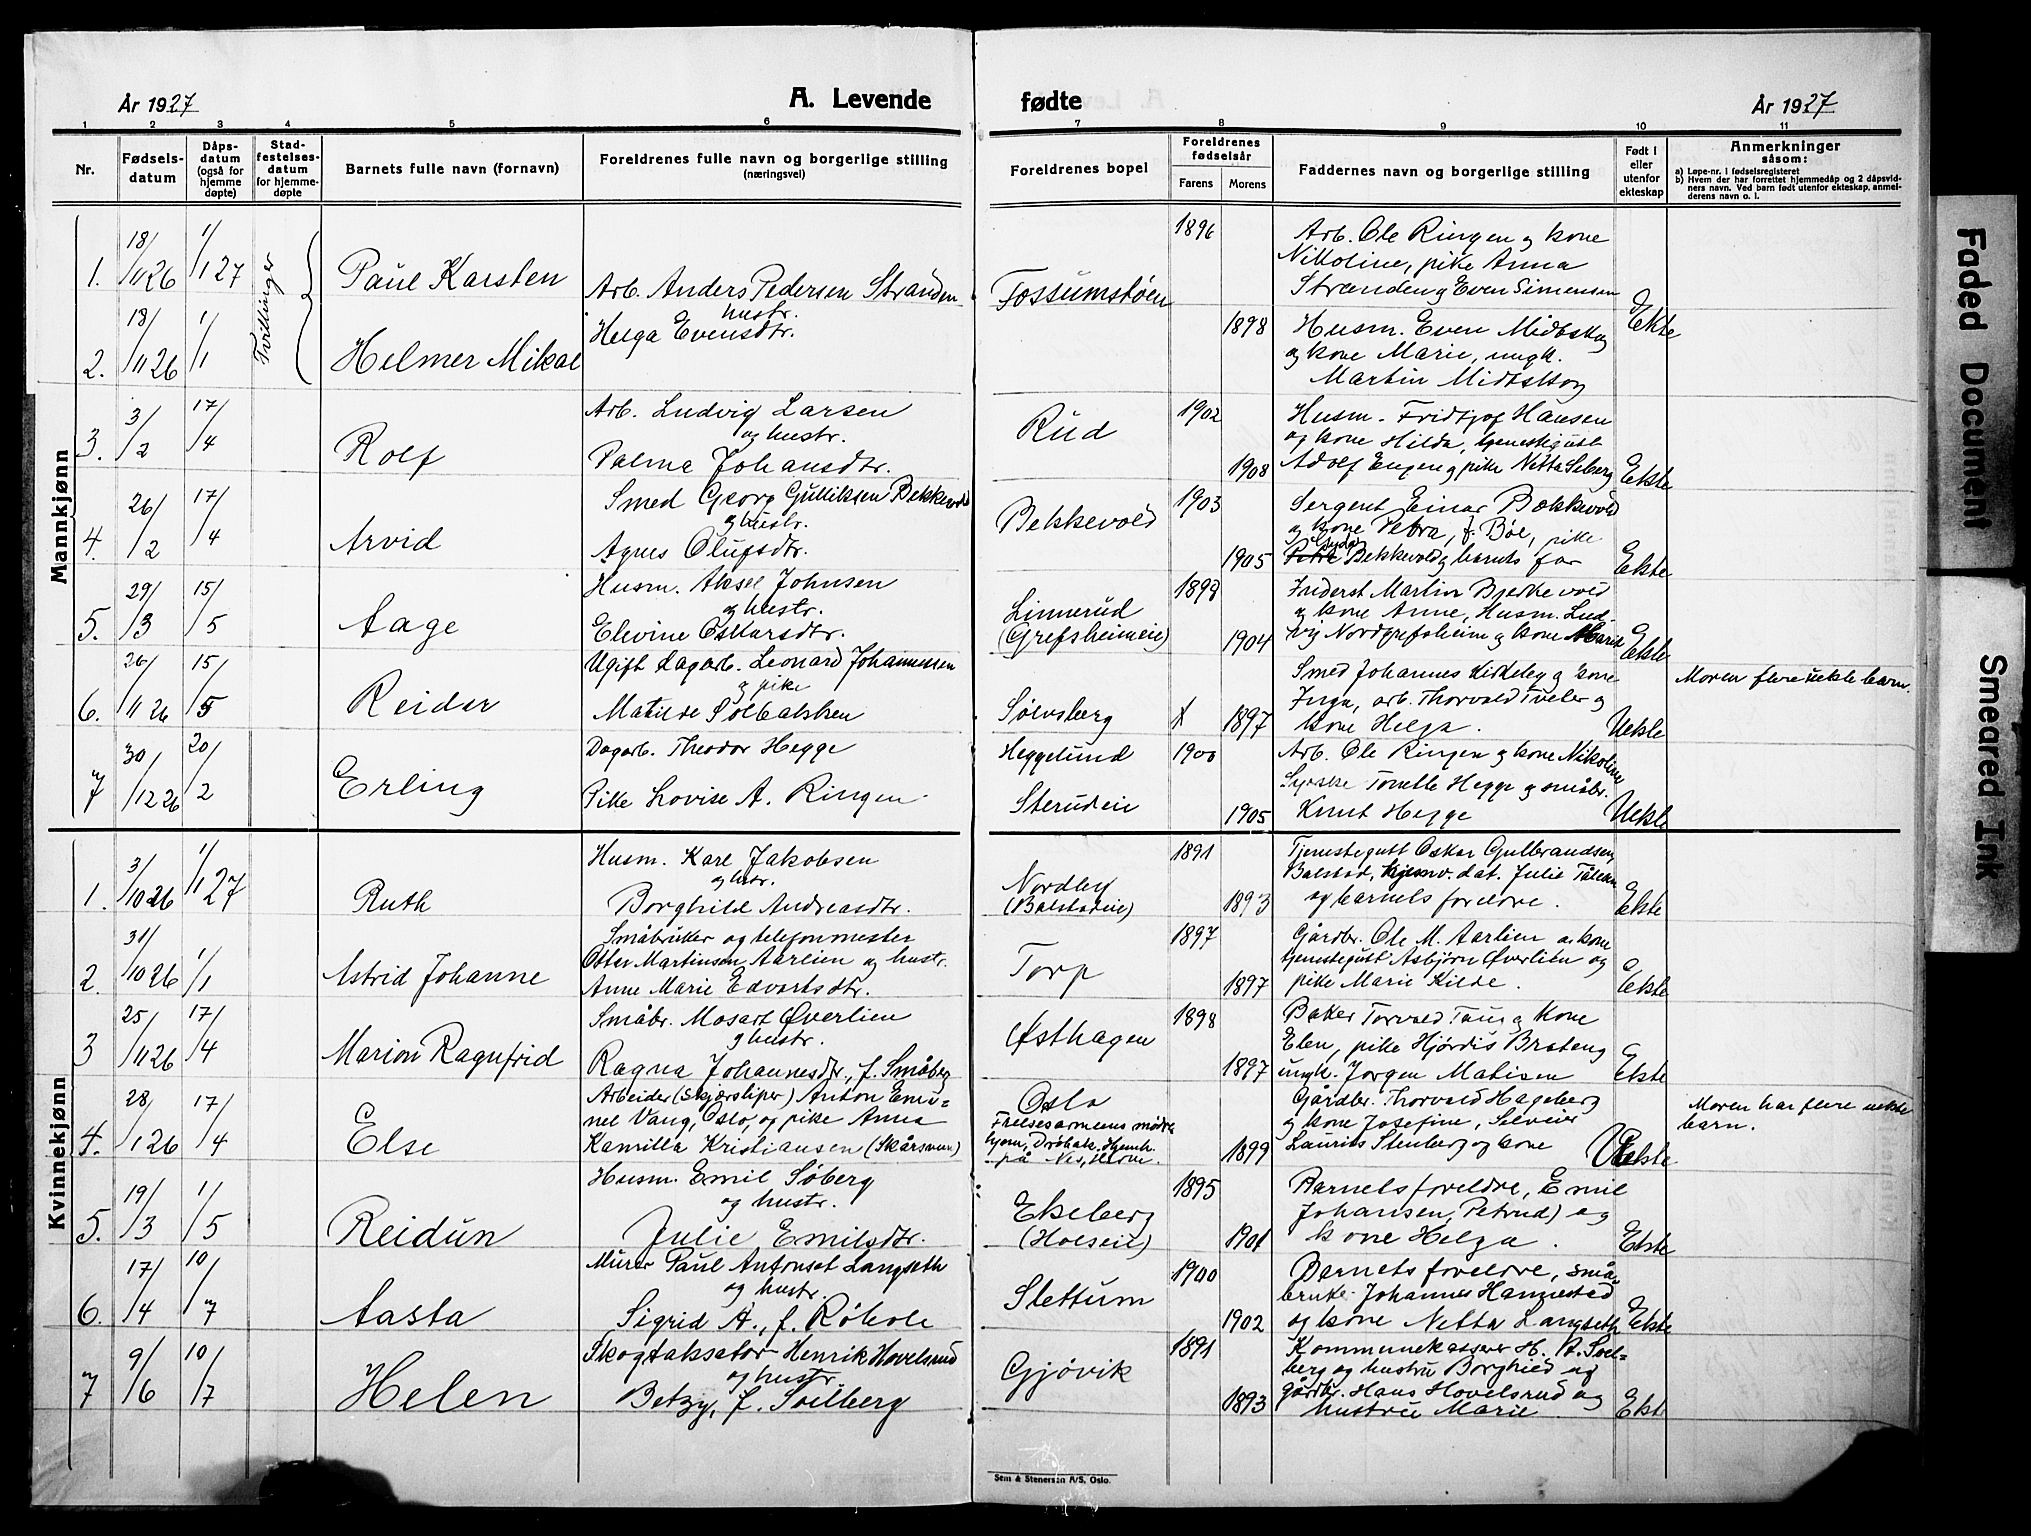 År 1927
A. Levende
fødte
År 1927
1 2 3 4 5 6 7 8 9 10 11
Nr.
Fødsels-
datum
Dåps-
datum
(også for
hjemme
døpte)
Stad-
festelses-
datum
for hjemme-
døpte
Barnets fulle navn (fornavn)
Foreldrenes fulle navn og borgerlige stilling
(næringsvei)
Foreldrenes bopel
Foreldrenes
fødselsår
Farens
Morens
Faddernes navn og borgerlige stilling
Født i
eller
utenfor
ekteskap
Anmerkninger
såsom:
a) Løpe-nr. i fødselsregisteret
b) Hvem der har forrettet hjemmedåp og 2 dåpsvid-
ners navn. Ved barn født utenfor ekteskap, anmel-
derens navn o. l.
Mannkjønn
Tvillinger
1. 18/11 26 1/1 27
Paul Karsten
Arb. Anders Pedersen Stranden
hustr.
Helga Evensdtr.
Fossumstøen
1896
1898
Arb. Ole Ringen og kone
Nikoline, pike Anna
Stranden og Even Simensen
2. 18/11 26 1/1
Helmer Mikal
Husm. Even Midtskog
og kone Marie, ungk.
Martin Midtskog
Ekte
3. 3/2 17/4
Rolf
Arb. Ludvig Larsen
og hustr.
Palma Johansdtr.
Rud
1902
1908
Husm. Fridtjof Hansen
og kone Hilda, tjenestegutt
Adolf Engen og pike Netta Seberg
Ekte
4. 26/2 17/4
Arvid
Smed Georg Gulliksen Bekkevold
og hustr.
Agnes Olufsdtr.
Bekkevold
1903
1905
Sergent Einar Bekkevold
og kone Petra, f. Bøe, pike
Bekkevold og barnets far
Ekte
5. 29/3 15/5
Aage
Husm. Aksel Johnsen
og hustr.
Elevine Oskarsdtr.
Linnerud
(Grefsheimeie)
1898
1904
Inderst Martin Bjerkevold
og kone Anne, Husm. Lud-
vig Nordgrefsheim og kone Marie
Ekte
6. 26/11 26 15/5
Reidar
Ugift dagarb. Leonard Johannessen
og pike
Matilde Solbakken
Sølvsberg
X
1897
Smed Johannes Kirkeby og kone
Inga, arb. Thorvald Tveter og
kone Helga.
Uekte
Moren flere uekte barn.
7 30/12 26 20/2
Erling
Dagarb. Theodor Hegge
Pike Lovise A. Ringen
Heggelund
Sterudeie
1900
1905
Arb. Ole Ringen og kone Nikoline
Tonelle Hegge og småbr.
Knut Hegge
Uekte
Kvinnekjønn
1. 3/10 26 1/1 27
Ruth
Husm. Karl Jakobsen
og hustr.
Borghild Andreasdtr.
Nordby
(Balstadeie)
1891
1893
Tjenestegutt Oskar Gulbrandsen
Balstad, hjemv. dat. Julie
og barnets foreldre.
Ekte
2. 31/10 26 1/1
Astrid Johanne
Småbruker og telefonmester
Otter Martinsen Aarlien og hustr.
Anne Marie Edvartsdtr.
Torp
1897
1897
Gårdbr. Ole M. Aarlien og kone
tjenestegutt Asbjørn Øverlien og
pike Marie Kilde.
Ekte
3 25/11 26 17/4
Marion Ragnfrid
Småbr. Mosart Øverlien
og hustr.
Ragna Johannesdtr., f. Småberg
Østhagen
1898
1897
Baker Torvald Taug og kone
Elen, pike Hjørdis Brateng
ungk. Jørgen Matisen
Ekte
4. 28/1 26 17/4
Else
Arbeider (skjærsliper) Anton Emi-
nel Vang, Oslo, og pike Anna
Kamilla Kristiansen (Skårsmoen)
Oslo
Frelsesarmeens mødre
hjem, Drøbak. Hjemh.
på Nes, Hedm.
1899
Gårdbr. Thorvald Hageberg
og kone Josefine, Selveier
Laurits Stenberg og kone
Uekte
Moren har flere uekte
barn.
5. 19/3 1/5
Reidun
Husm. Emil Søberg
og hustr.
Julie Emilsdtr.
Ekeberg
(Hoelseie)
1895
1901
Barnets foreldre, Emil
Johansen, Petrud) og
kone Helga.
Ekte
6. 17/4 10/7
Aasta
Murer Paul Antonset Langseth
og hustr.
Sigrid A., f. Røhole
Slettum
1900
1902
Barnets foreldre, små-
bruke. Johannes Hannestad
og kone Netta Langseth
Ekte
7 9/6 10/7
Helen
Skogtaksator Henrik Hovelsrud
og hustr.
Betzy, f. Solberg
Gjøvik
1891
1893
Kommunekasserer H. A. Sol-
berg og hustru Borghild og
gårdbr. Hans Hovelsrud og
hustru Marie.
Ekte
Sem & Stenersen A/S, Oslo.
Faded Document
Smeared Ink